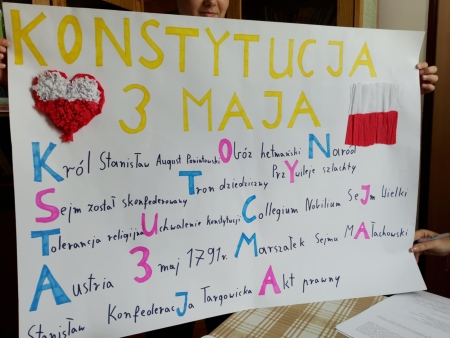 KONSTYTUCJA
3 MAJA
Król Stanisław August Poniatowski Obóz hetmański Naród
Sejm został skonfederowany Tron dziedziczny Przywileje szlachty
Tolerancja religijna Uchwalenie konstytucji Collegium Nobilium Sejm Wielki
Austria 3 maj 1791r. Marszałek Sejmu Małachowski
Stanisław Konfederacja Targowicka Akt prawny